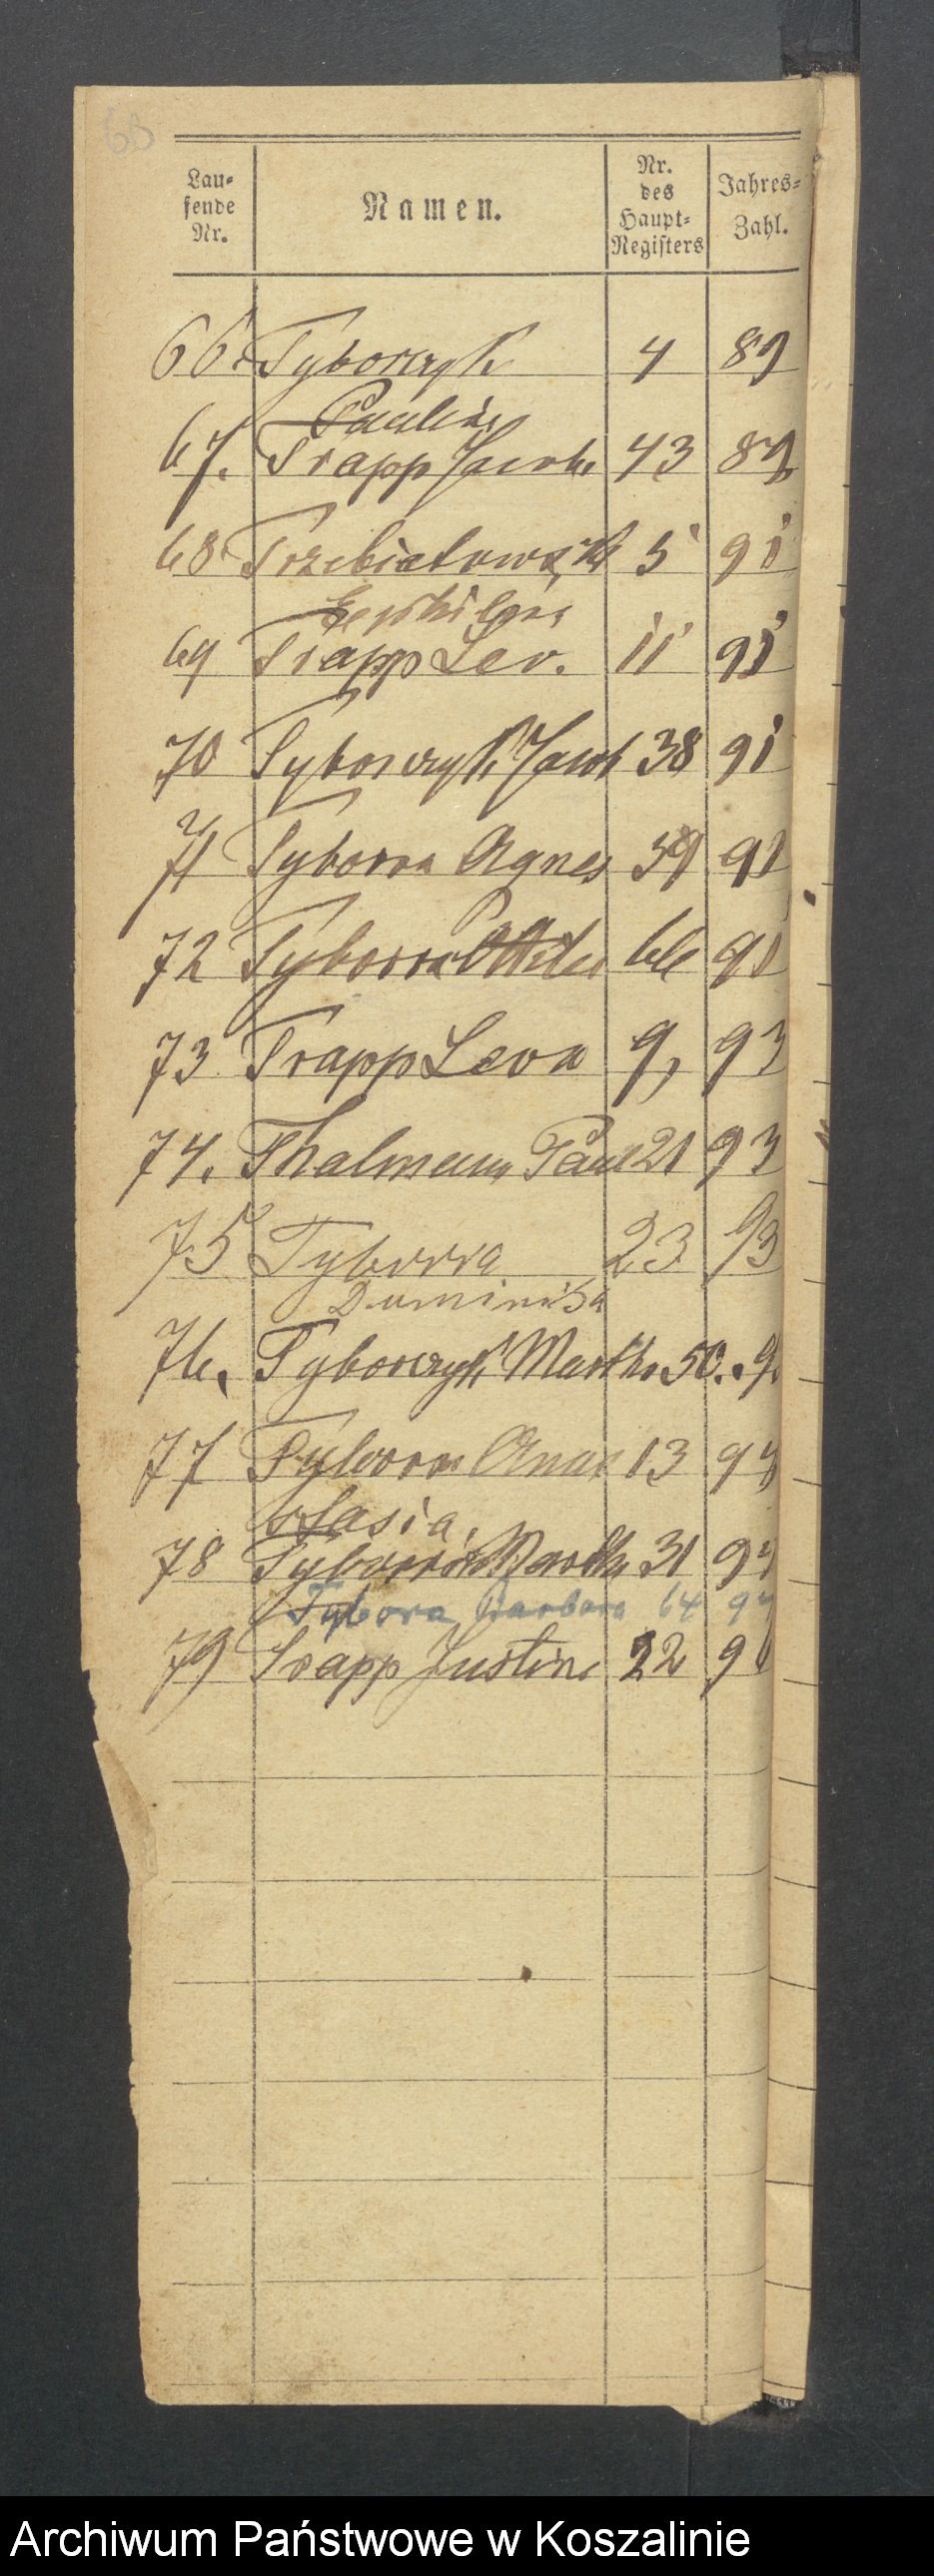 68
Lau-
fende
Nr.
Namen.
Nr.
des
Haupt-
Registers
Jahres-
Zahl.
66. Tyborczyk 4 89
Pauline
67. Trapp Jacob 43 89
68 Trzebiatowski 5 91
69 Trapp Leo. 11 91
70 Tyborczyk Jacob 38 91
71 Tyborra Agnes 59 91
72 Tyborra 66 91
73 Trapp Leon 9, 93
74. Thalmann Paul 21 93
75 Tyborra 23 93
Dominika
76. Tyborczyk Martha 50. 9
77 Tyborra Anas 13 94
tasia.
78 Tyborra Martha 31 94
Tybora Barbara 64 94
79 Trapp Justine 22 9
Archiwum Państwowe w Koszalinie